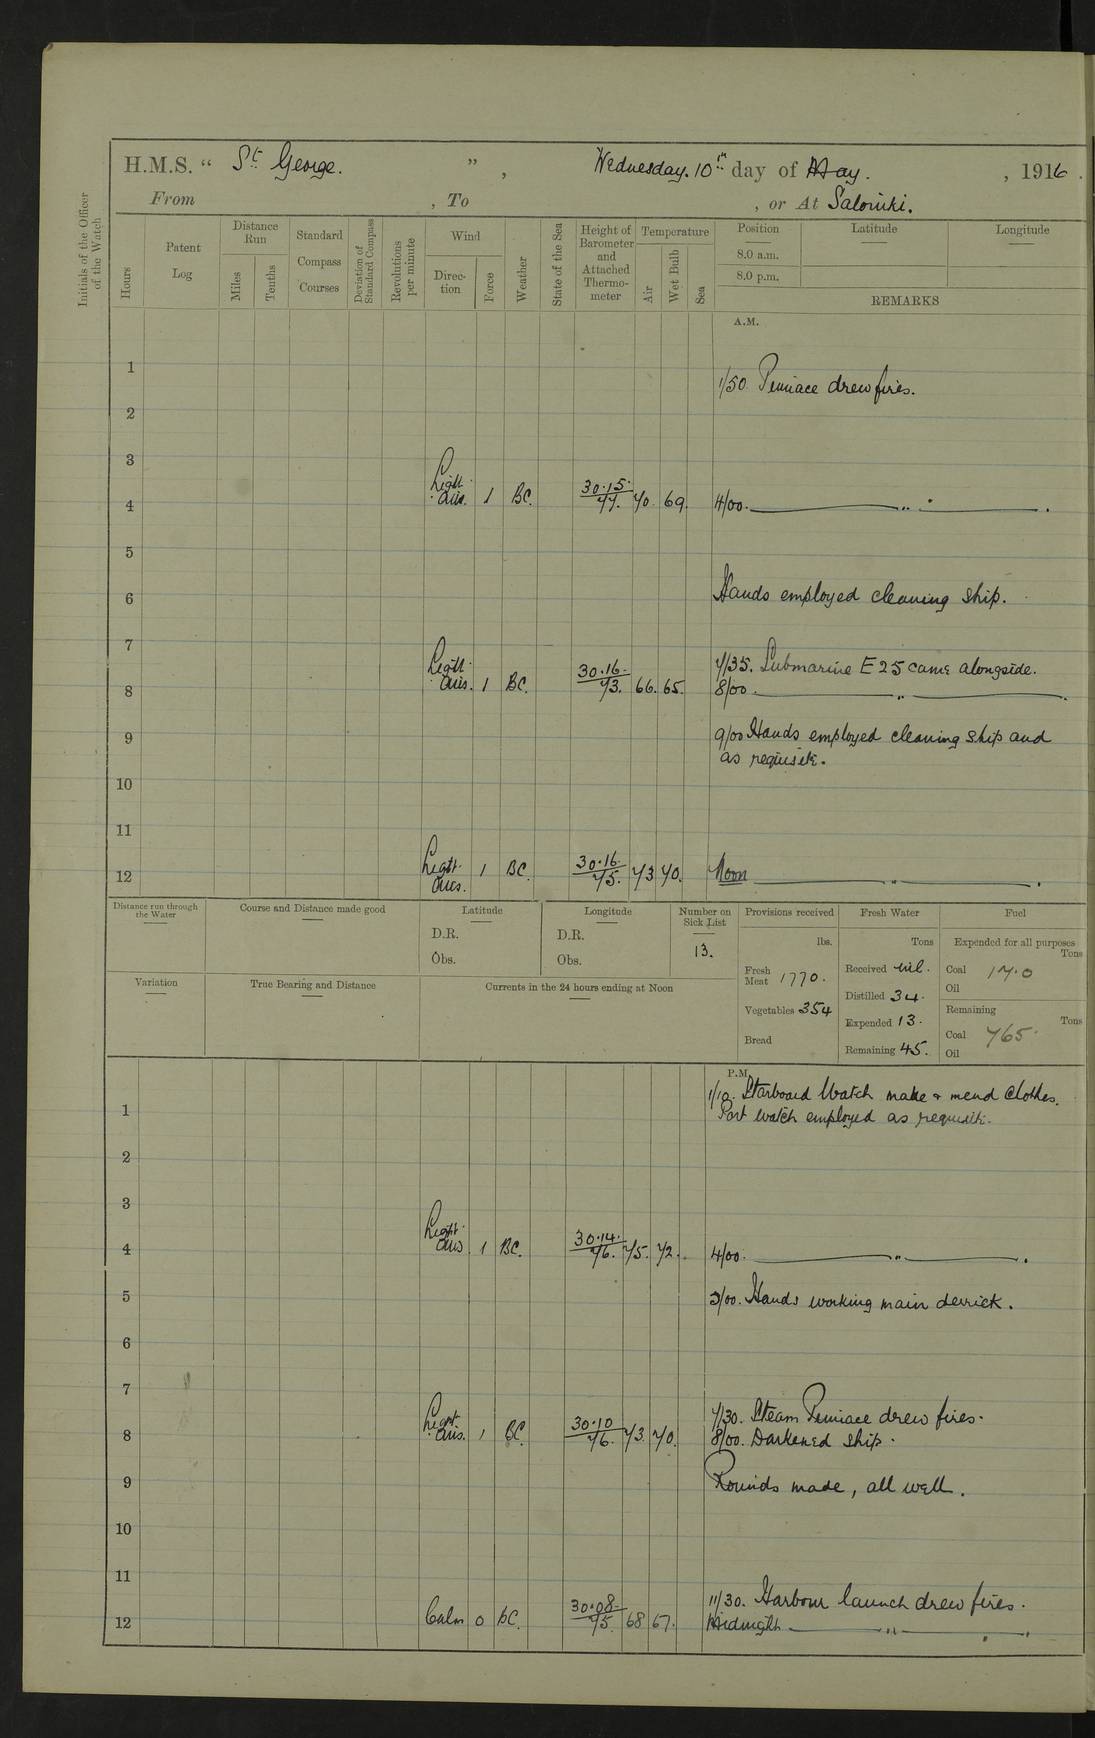 H.M.S. “ St George. ” , Wednesday. 10th day of May. , 1916 .
From , To , or At Salonuki.
Initials of the Officer of the Watch
Hours
Patent Log
Distance Run
Miles
Tenths
Standard Compass Courses
Deviation of Standard Compass
Revolutions per minute
Wind
Direc-tion
Force
Weather
State of the Sea
Height of Barometer and Attached Thermo-meter
Temperature
Air
Wet Bulb
Sea
Position Latitude Longitude
8.0 a.m.
8.0 p.m.
REMARKS
A.M.
1
1/50. Pinnace drew fires.
2
3
4 Light airs. 1 BC. 30.15. 77. 70 69. 4/00. ———— „ ————.
5
6 Hands employed cleaning ship.
7
7/35. Submarine E25 came alongside.
8 Light airs. 1 BC. 30.16. 73. 66. 65. 8/00 ———— „ ————.
9 9/00 Hands employed cleaning ship and
as requisite.
10
11
12 Light airs. 1 BC. 30.16. 75. 73 70. Noon ———— „ ————.
Distance run through the Water
Course and Distance made good
Latitude
D.R.
Obs.
Longitude
D.R.
Obs.
Number on Sick List
13.
Provisions received
lbs.
Fresh Meat 1770.
Vegetables 354
Bread
Fresh Water
Tons
Received nil.
Distilled 34.
Expended 13.
Remaining 45.
Fuel
Expended for all purposes
Tons
Coal 17.0
Oil
Remaining
Tons
Coal 765.
Oil
Variation
True Bearing and Distance
Currents in the 24 hours ending at Noon
P.M.
1/10. Starboard Watch make & mend clothes.
1 Port watch employed as requisite.
2
3
4 Light airs 1 BC. 30.14. 76. 75. 72. 4/00. ———— „ ————.
5 5/00. Hands working main derrick.
6
7
7/30. Steam Pinnace drew fires.
8 Light airs. 1 BC. 30.10 76. 73. 70. 8/00. Darkened ship.
9 Rounds made, all well.
10
11
11/30. Harbour launch drew fires.
12 Calm 0 BC. 30.08. 75. 68 67. Midnight ———— „ ————